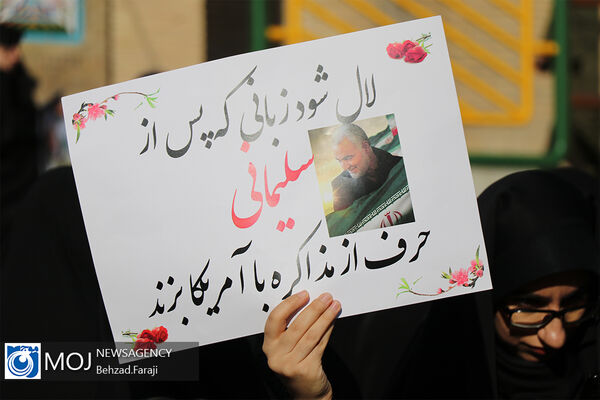 لال شود زبانی که پس از
سلیمانی
حرف از مذاکره با آمریکا بزند
MOJ NEWSAGENCY
Behzad.Faraji